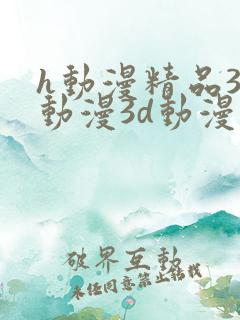 h動漫精品3
動漫3d動漫
破界互動
未任同意禁止转找